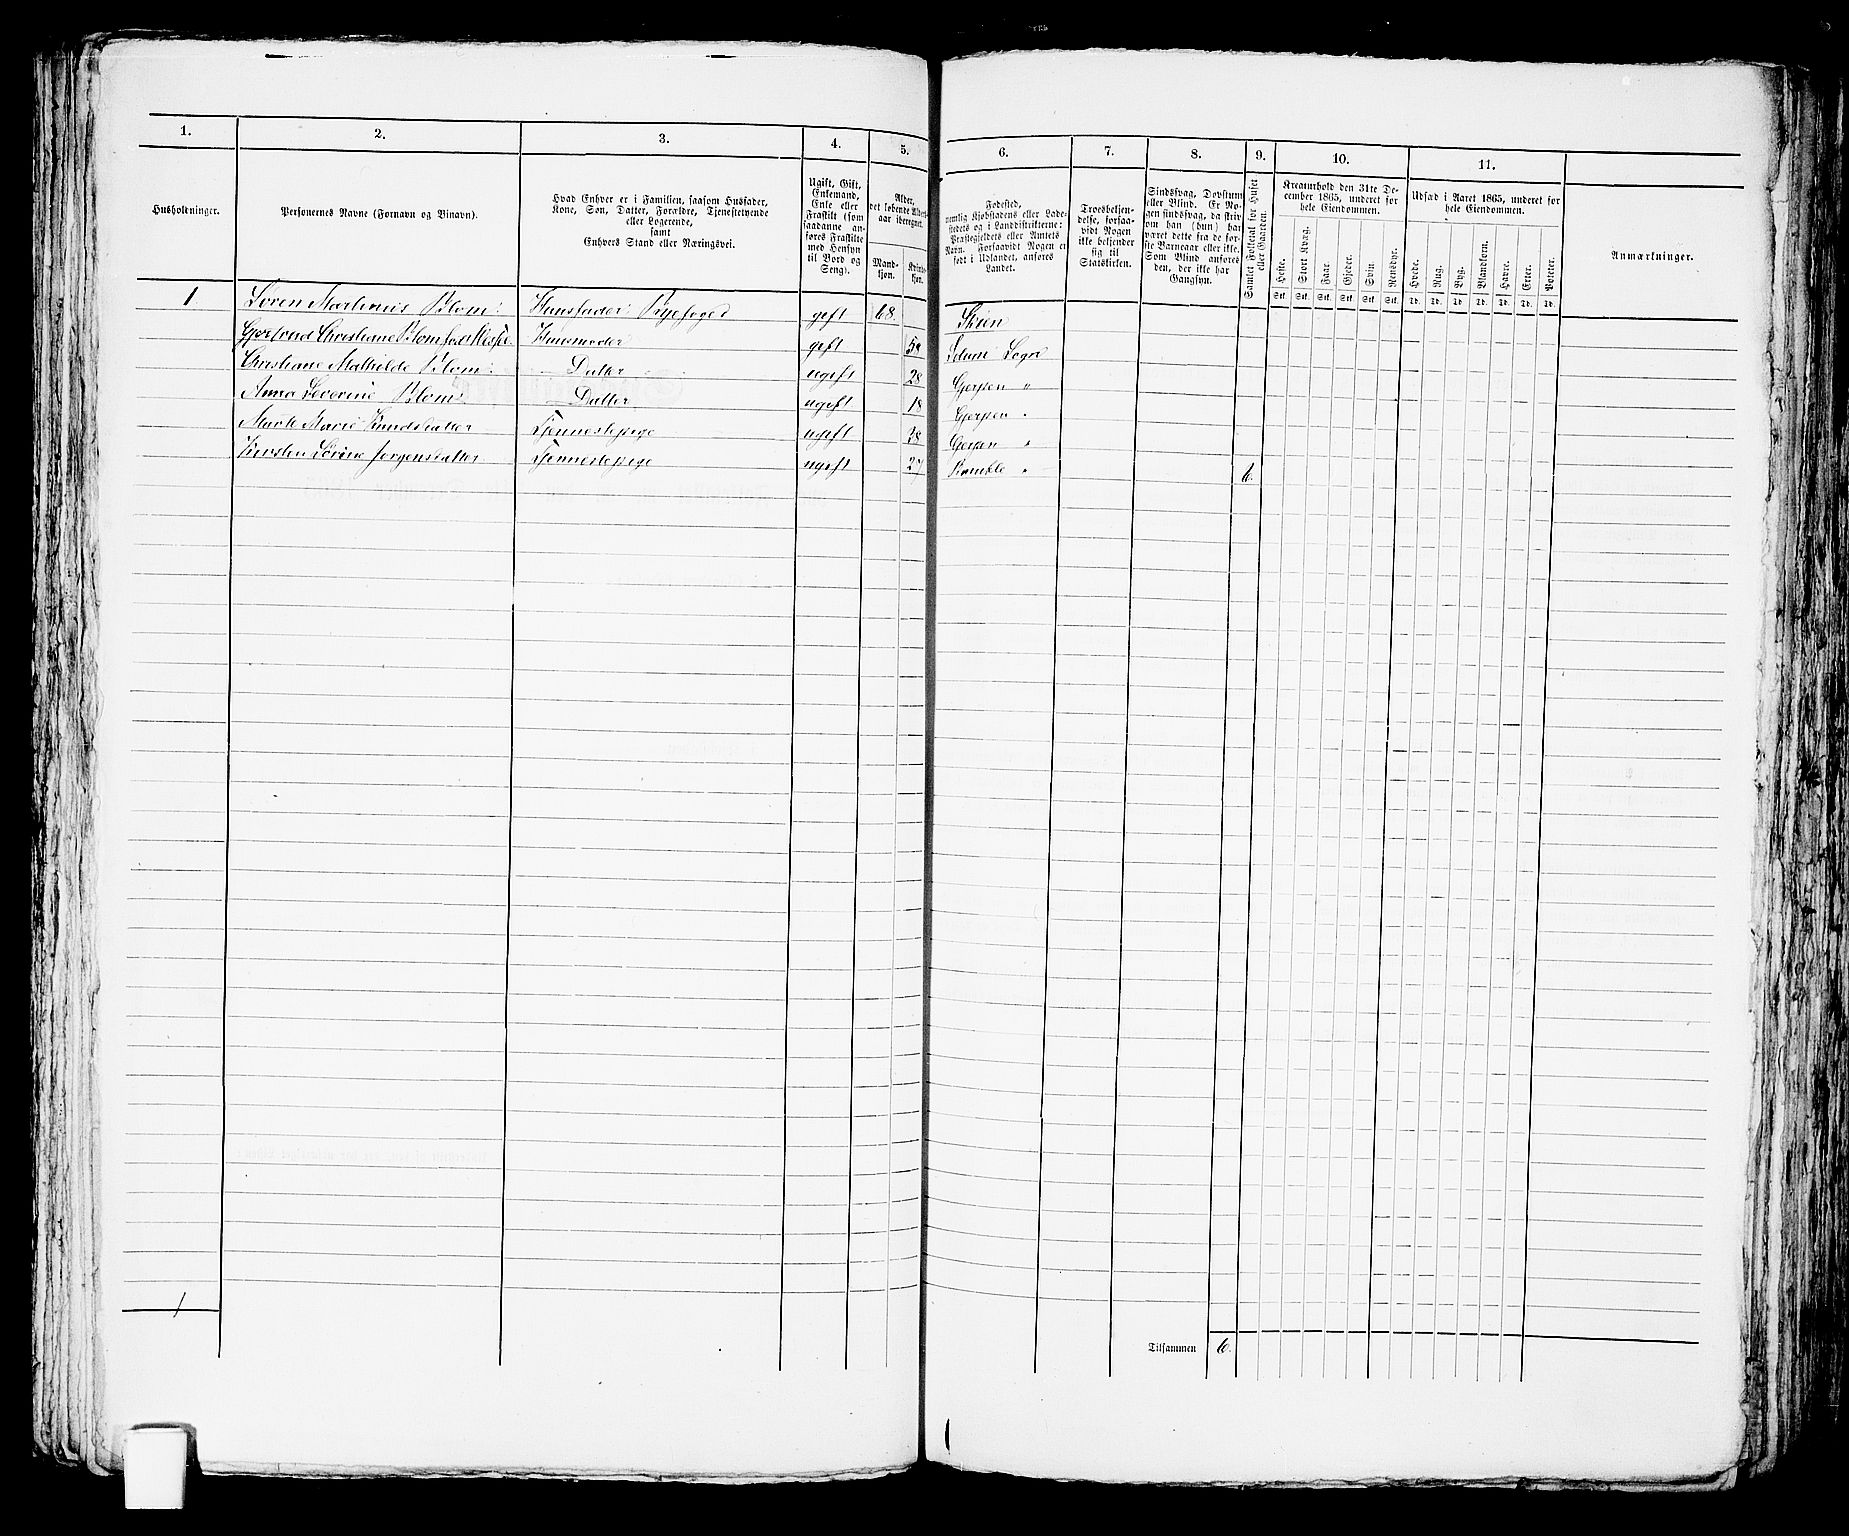 1.
2.
3.
4.
5.
6.
7.
8.
9.
10.
11.
Husholdninger.
Personernes Navne (Fornavn og Binavn).
Hvad Enhver er i Familien, saasom Husfader,
Kone, Søn, Datter, Forældre, Tjenestetyende
eller Logerende,
samt
Enhvers Stand eller Næringsvei.
Ugift, Gift,
Enkemand,
Enke eller
Fraskilt (som
saadanne an-
føres Fraskilte
med Hensyn
til Bord og
Seng).
Alder,
det løbende Alders-
aar iberegnet.
Mand-
kjøn.
Kvinde-
kjøn.
Fødested,
nemlig Kjøbstadens eller Lade-
stedets og i Landdistrikterne:
Præstegjeldets eller Annexets
Navn. Forsaavidt Nogen er
født i Udlandet, anføres
Landet.
Troesbekjen-
delse, forsaa-
vidt Nogen
ikke bekjender
sig til
Statskirken.
Sindssvag, Døvstum
eller Blind. Er No-
gen sindssvag, da skriv
om han (hun) har
været dette fra de før-
ste Barneaar eller ikke.
Som Blind anføres
den, der ikke har
Gangsyn.
Samlet Folketal for Huset
eller Gaarden.
Kreaturhold den 31te De-
cember 1865, underet for
hele Eiendommen.
Heste.
Stort Kvæg.
Faar.
Gjeder.
Svin.
Rensdyr.
Stk. Stk. Stk. Stk. Stk. Stk.
Udsæd i Aaret 1865, underet for
hele Eiendommen.
Hvede.
Rug.
Byg.
Blandkorn.
Havre.
Erter.
Poteter.
Td. Td. Td. Td. Td. Td. Td.
Anmærkninger.
1 Søren Martinus Blom Huusfader Byefoged gift 68. Skien
Christiane Blom født Huusmoder gift 59 Sogn
Christiane Mathilde Blom Datter ugift 28 Gjerpen "
Anna Severine Blom Datter ugift 18 Gjerpen "
Marie Knudsdatter Tjennestepige ugift 38 Gjerpen "
Kirsten Sørine Jørgensdatter Tjennestepige ugift 27 Bamble " 6.
1
Tilsammen 6.